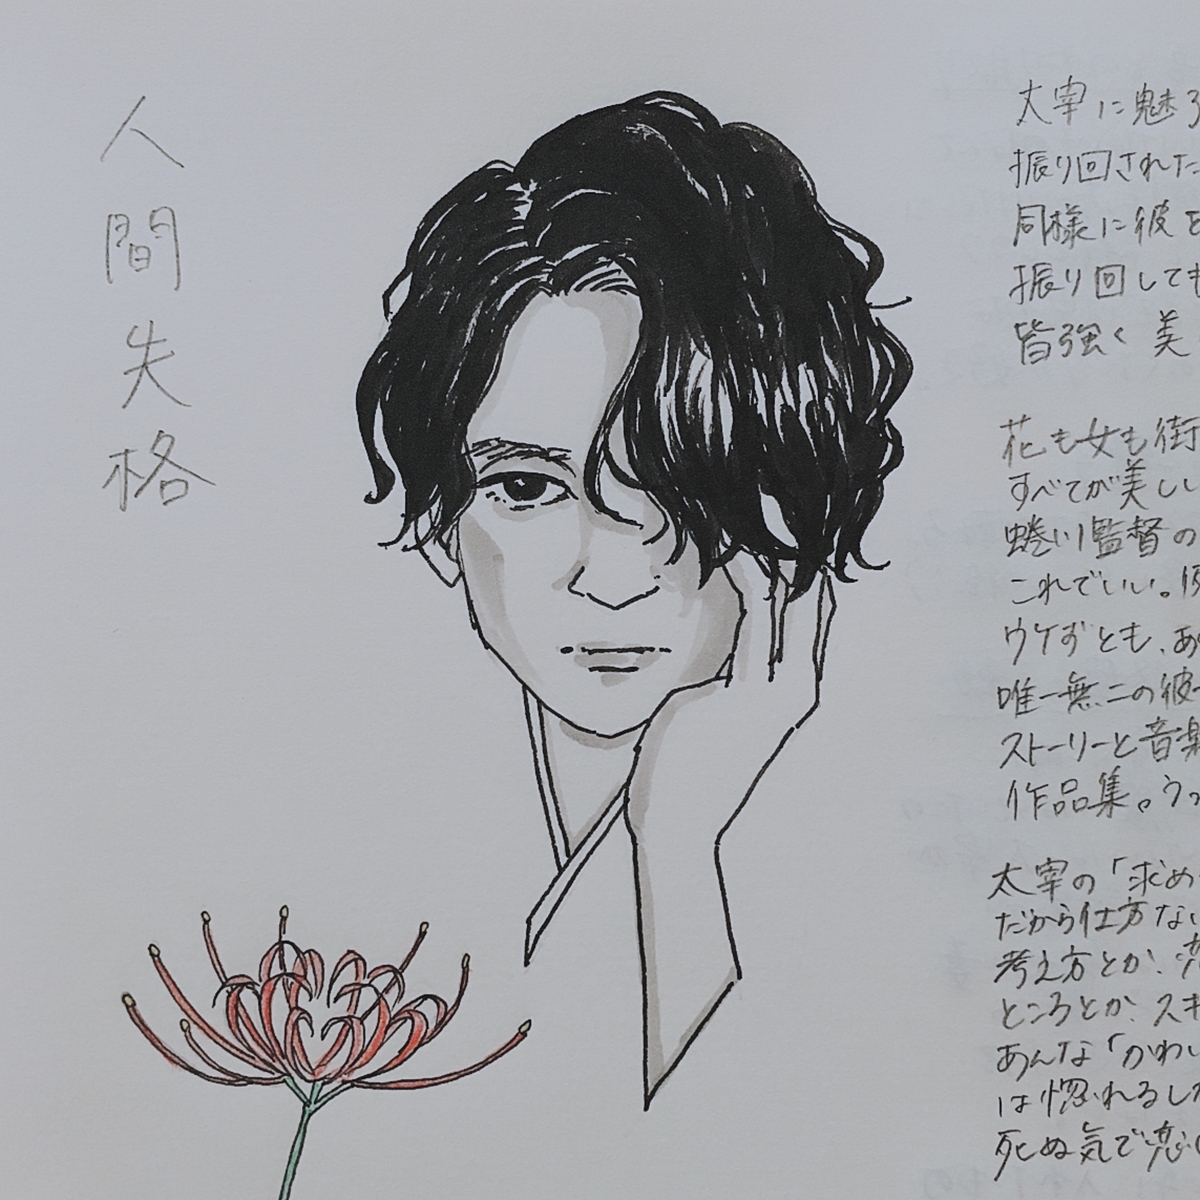 人間失格
太宰に魅
振り回された
同様に彼を
振り回しても
皆強く美
花も女も街
すべてが美し
蜷川監督の
これでいい。
ウケずとも、あ
唯一無二の彼
ストーリーと音楽
作品集。うっ
太宰の「求め
だから仕方ない
考え方とか、恋
ところとか、スキ
あんな「かわい
は惚れるし
死ぬ気で恋